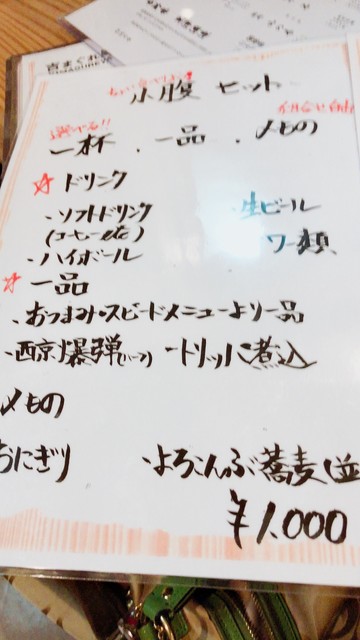 小腹セット
選べる!!
一杯 . 一品 . 〆もの
☆ドリンク
・ソフトドリンク ・生ビール
(コーヒーetc) ・サワー類
・ハイボール
☆一品
・おつまみ・スピードメニューより一品
・西京爆弾(ハーフ) ・トリッパ煮込
〆もの
おにぎり ・よろこんぶ蕎麦(並
¥1.000